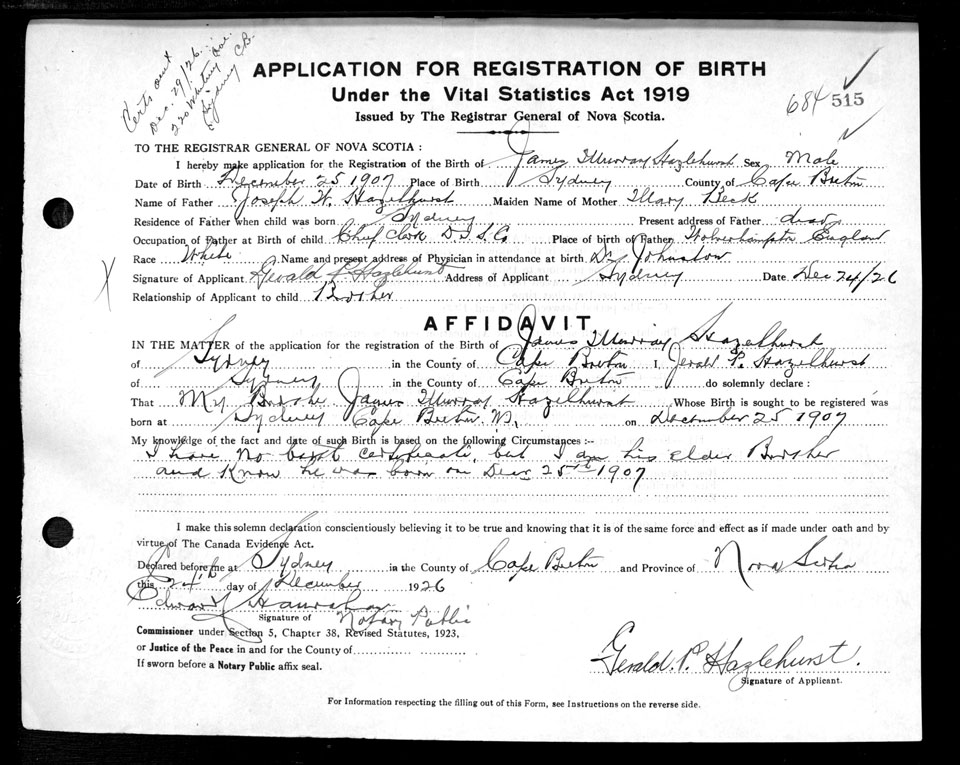 Certs sent
Dec. 29/26.
220 Whitney Ave.
Sydney C.B.
APPLICATION FOR REGISTRATION OF BIRTH
Under the Vital Statistics Act 1919
Issued by The Registrar General of Nova Scotia.
684 515
TO THE REGISTRAR GENERAL OF NOVA SCOTIA :
I hereby make application for the Registration of the Birth of James Murray Hazlehurst Sex Male
Date of Birth December 25 1907 Place of Birth Sydney County of Cape Breton
Name of Father Joseph W. Hazlehurst Maiden Name of Mother Mary Beck
Residence of Father when child was born Sydney Present address of Father dead
Occupation of Father at Birth of child Chief Clerk D.I.S.Co Place of birth of Father Wolverhampton England
Race White Name and present address of Physician in attendance at birth Dr Johnston
Signature of Applicant Gerald P Hazlehurst Address of Applicant Sydney Date Dec 24/26
Relationship of Applicant to child Brother
AFFIDAVIT
IN THE MATTER of the application for the registration of the Birth of James Murray Hazelhurst
of Sydney in the County of Cape Breton I Jerald P. Hazelhurst
of Sydney in the County of Cape Breton do solemnly declare :
That My Brother James Murray Hazelhurst Whose Birth is sought to be registered was
born at Sydney Cape Breton on December 25 1907
My knowledge of the fact and date of such Birth is based on the following Circumstances :--
I have no bapt certificate but I am his elder Brother
and know he was born on Decr 25th 1907
I make this solemn declaration conscientiously believing it to be true and knowing that it is of the same force and effect as if made under oath and by
virtue of The Canada Evidence Act.
Declared before me at Sydney in the County of Cape Breton and Province of Nova Scotia
this 24th day of December 1926
Edward
Signature of Notary Public
Commissioner under Section 5, Chapter 38, Revised Statutes, 1923,
or Justice of the Peace in and for the County of
If sworn before a Notary Public affix seal.
Gerald. P. Hazlehurst.
Signature of Applicant.
For Information respecting the filling out of this Form, see Instructions on the reverse side.